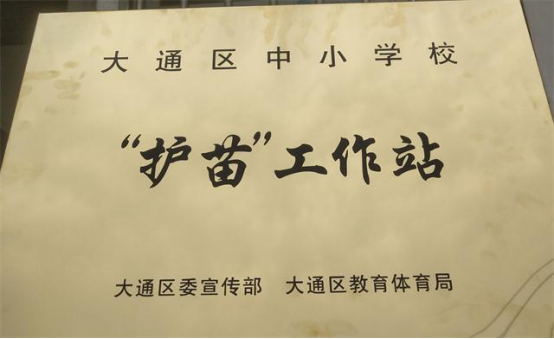 大通区中小学校
“护苗”工作站
大通区委宣传部 大通区教育体育局